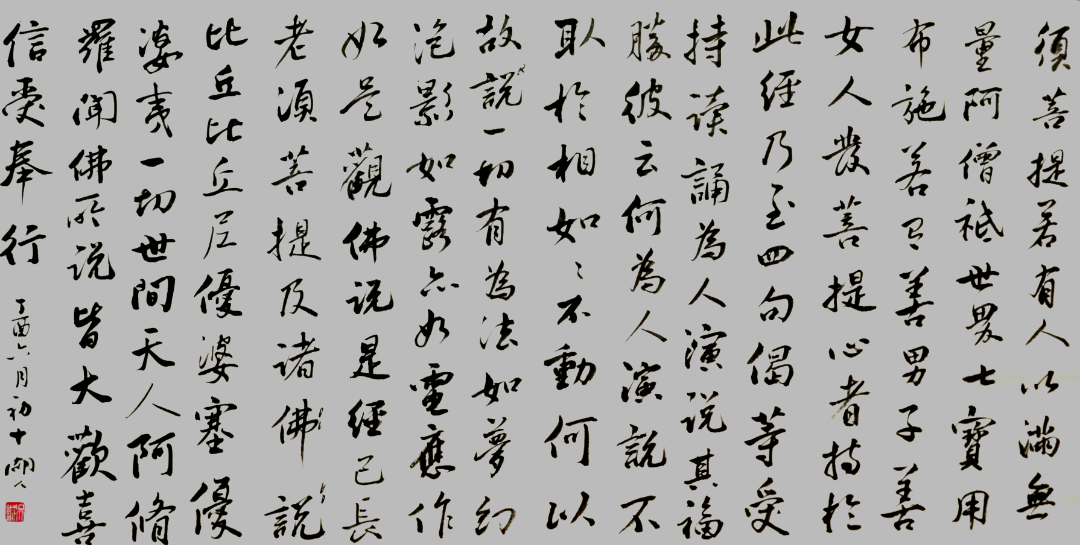 須菩提若有人以滿無
量阿僧祇世界七寶用
布施若有善男子善
女人發菩提心者持於
此經乃至四句偈等受
持读誦為人演说其福
勝彼云何為人演說不
取於相如〻不動何以
故說一切有為法如夢幻
泡影如露亦如電應作
如是觀佛说是經已長
老須菩提及诸佛說
比丘比丘尼優婆塞優
婆夷一切世間天人阿脩
羅聞佛所说皆大歡喜
信受奉行
丁酉六月初十